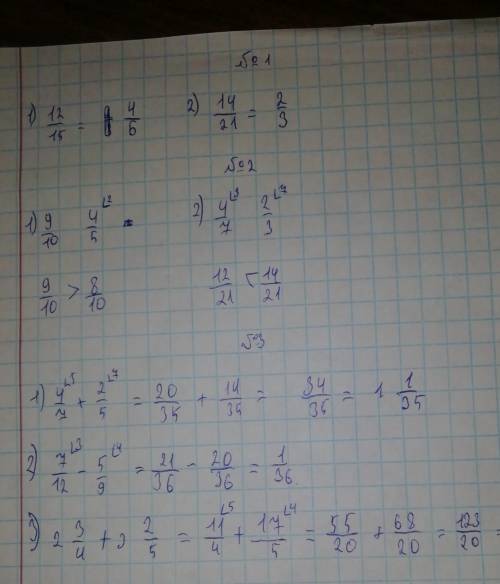 №1
1) 12/15 = 4/5 2) 14/21 = 2/3
№2
1) 9/10 4/5 ⌊2 2) 4/7 ⌊3 2/3 ⌊7
9/10 > 8/10 12/21 < 14/21
№3
1) 4/7 ⌊5 + 2/5 ⌊7 = 20/35 + 14/35 = 34/35 = 1 1/35
2) 7/12 ⌊3 - 5/9 ⌊4 = 21/36 - 20/36 = 1/36
3) 2 3/4 + 3 2/5 = 11/4 ⌊5 + 17/5 ⌊4 = 55/20 + 68/20 = 123/20 =